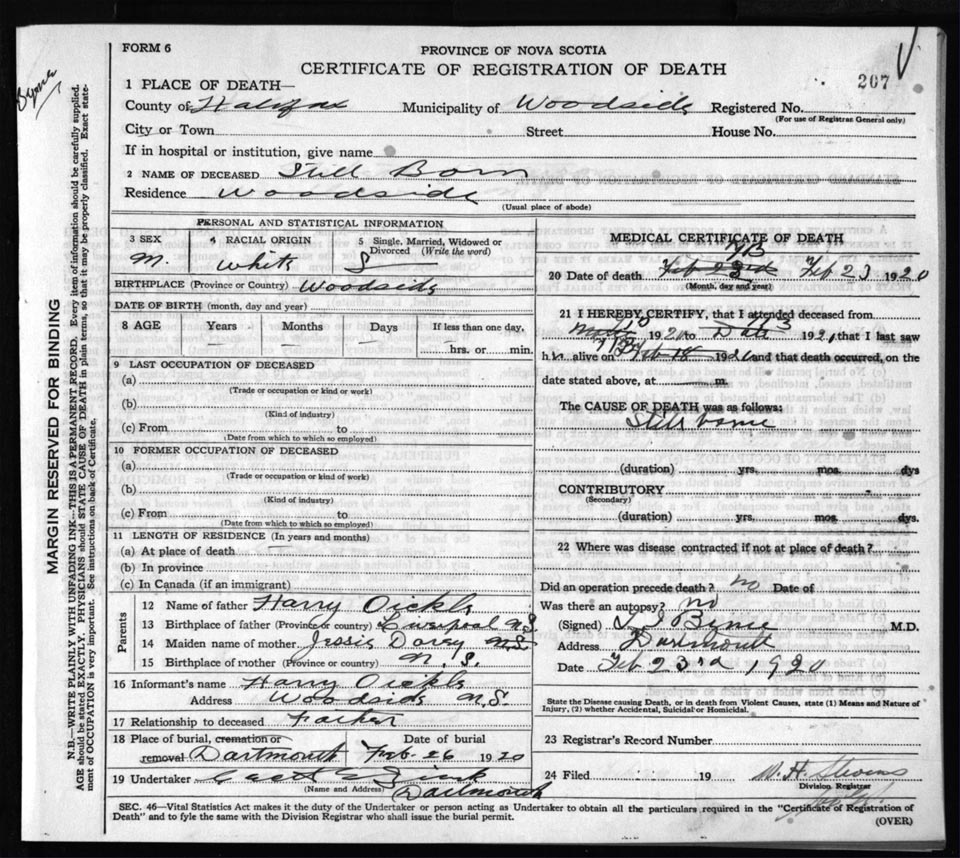 FORM 6
PROVINCE OF NOVA SCOTIA
CERTIFICATE OF REGISTRATION OF DEATH
207
Byrne
1 PLACE OF DEATH—
County of Halifax Municipality of Woodside Registered No.
(For use of Registrar General only)
City or Town Street House No.
If in hospital or institution, give name
2 NAME OF DECEASED Still Born
Residence Woodside
(Usual place of abode)
PERSONAL AND STATISTICAL INFORMATION
3 SEX 4 RACIAL ORIGIN 5 Single, Married, Widowed or Divorced (Write the word)
M. White S
BIRTHPLACE (Province or Country) Woodside
DATE OF BIRTH (month, day and year)
8 AGE Years Months Days If less than one day,
— — — — hrs. or min.
9 LAST OCCUPATION OF DECEASED
(a)
(Trade or occupation or kind or work)
(b)
(Kind of industry)
(c) From to
(Date from which to which so employed)
10 FORMER OCCUPATION OF DECEASED
(a)
(Trade or occupation or kind of work)
(b)
(Kind of industry)
(c) From to
(Date from which to which so employed)
11 LENGTH OF RESIDENCE (In years and months)
(a) At place of death —
(b) In province
(c) In Canada (if an immigrant)
Parents
12 Name of father Harry Oickle
13 Birthplace of father (Province or country) Liverpool N.S.
14 Maiden name of mother Jessie Dorey N.S.
15 Birthplace of mother (Province or country) N. S.
16 Informant's name Harry Oickle
Address Woodside N.S.
17 Relationship to deceased Father
18 Place of burial, cremation or removal Dartmouth Date of burial Feb. 26 1920
19 Undertaker
(Name and Address) Dartmouth
MEDICAL CERTIFICATE OF DEATH
20 Date of death Feb 23rd Feb 23 1920
(Month, day and year)
21 I HEREBY CERTIFY, that I attended deceased from
192 to Date 192 that I last saw
h alive on Feb 192 and that death occurred, on the
date stated above, at m.
The CAUSE OF DEATH was as follows:
Still borne
(duration) yrs. mos. dys
CONTRIBUTORY
(Secondary)
(duration) yrs. mos. dys.
22 Where was disease contracted if not at place of death?
Did an operation precede death? no Date of
Was there an autopsy? no
(Signed) Byrne M.D.
Address Dartmouth
Date Feb 23rd 1920
State the Disease causing Death, or in death from Violent Causes, state (1) Means and Nature of
Injury, (2) whether Accidental, Suicidal or Homicidal.
23 Registrar's Record Number
24 Filed 19 W. H. Stevens
Division Registrar
SEC. 46—Vital Statistics Act makes it the duty of the Undertaker or person acting as Undertaker to obtain all the particulars required in the "Certificate of Registration of
Death" and to fyle the same with the Division Registrar who shall issue the burial permit.
(OVER)
MARGIN RESERVED FOR BINDING
N.B.—WRITE PLAINLY WITH UNFADING INK—THIS IS A PERMANENT RECORD. Every item of information should be carefully supplied.
AGE should be stated EXACTLY. PHYSICIANS should STATE CAUSE OF DEATH in plain terms, so that it may be properly classified. Exact state-
ment of OCCUPATION is very important. See instructions on back of Certificate.